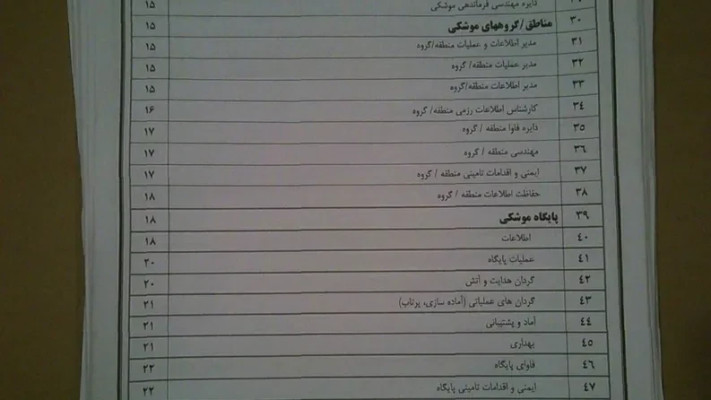 دایره مهندسی فرماندهی موشکی ۱۵
۳۰ مناطق/گروههای موشکی ۱۵
۳۱ مدیر اطلاعات و عملیات منطقه/گروه ۱۵
۳۲ مدیر عملیات منطقه/ گروه ۱۵
۳۳ مدیر اطلاعات منطقه/گروه ۱۵
۳٤ کارشناس اطلاعات رزمی منطقه/ گروه ۱۶
۳۵ دایره فاوا منطقه / گروه ۱۷
۳۶ مهندسی منطقه / گروه ۱۷
۳۷ ایمنی و اقدامات تامینی منطقه / گروه ۱۷
۳۸ حفاظت اطلاعات منطقه / گروه ۱۸
۳۹ پایگاه موشکی ۱۸
٤۰ اطلاعات ۱۸
٤۱ عملیات پایگاه ۲۰
٤۲ گردان هدایت و آتش ۲۰
٤۳ گردان های عملیاتی (آماده سازی، پرتاب) ۲۱
٤٤ آماد و پشتیبانی ۲۱
٤۵ بهداری ۲۱
٤۶ فاوای پایگاه ۲۲
٤۷ ایمنی و اقدامات تامینی پایگاه ۲۲